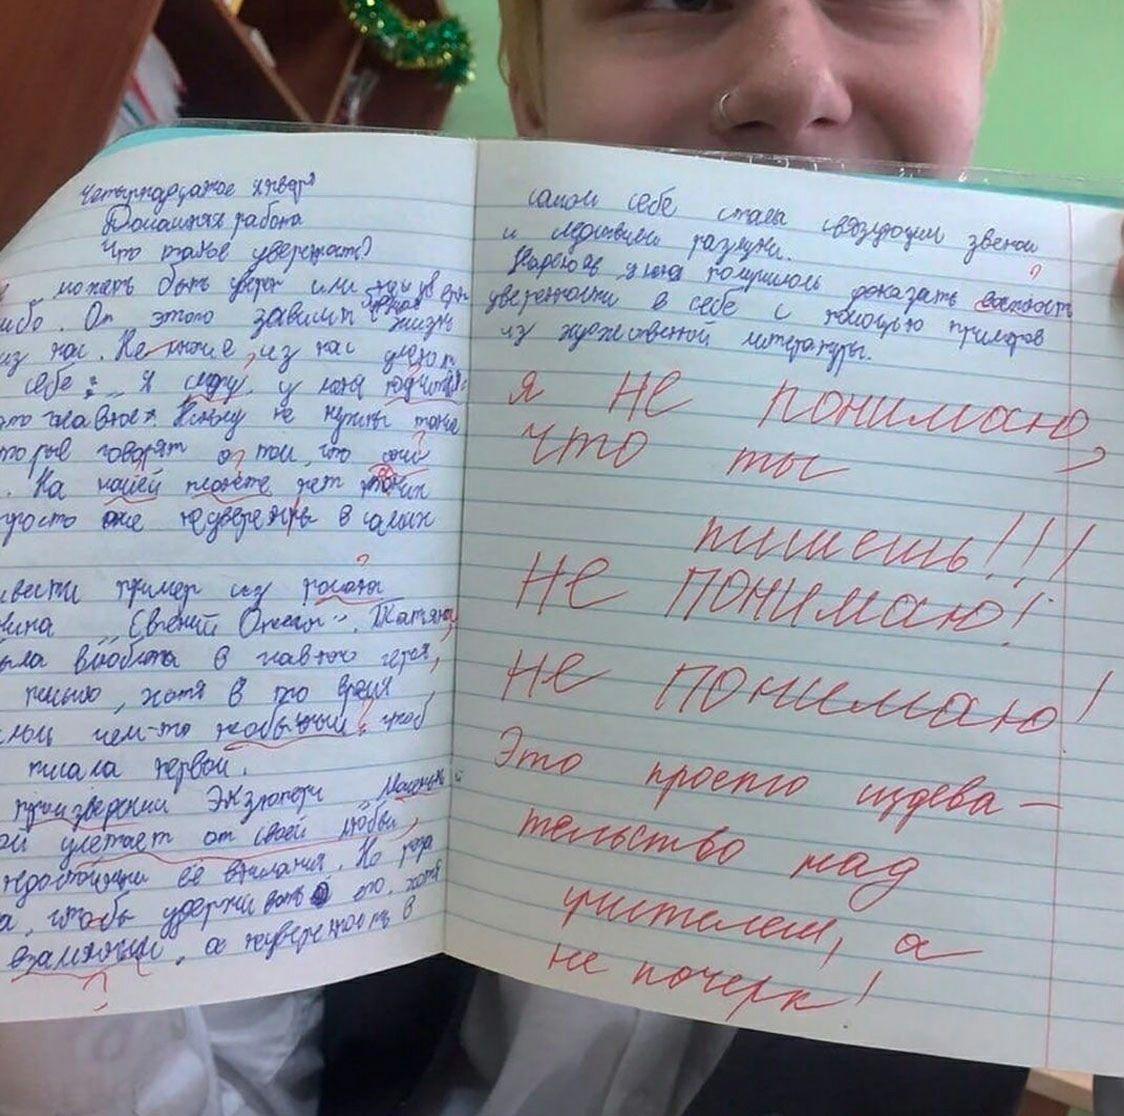 Четырнадцатое января
Домашняя работа
Что такое уверенность?
может быть уверен или
ибо. От этого зависит жизнь
из нас. Не многие, из нас умеют
себе: „Я смогу, у меня получится
это главное". Никому не нужны такие
торые говорят о том, что они
. На нашей планете нет таких
просто они не уверены в самих
ивести пример из
„Евгений Онегин". Татьяна
ыла влюблена в главного героя,
письмо, хотя в то время
чем-то необычным, чтоб
писала первой.
произведении Экзюпери „Маленький
ой улетает от своей любви,
её внимания. Но
а, чтобы удерживать его, хотя
взаимными, а неуверенность в
самом себе стала связующим звеном
и разлуки.
Надеюсь, у меня получилось доказать важность
уверенности в себе с помощью примеров
из художественной литературы.
Я не понимаю,
что ты
пишешь!!!
Не понимаю!
Не понимаю!
Это просто издева-
тельство над
учителем, а
не почерк!